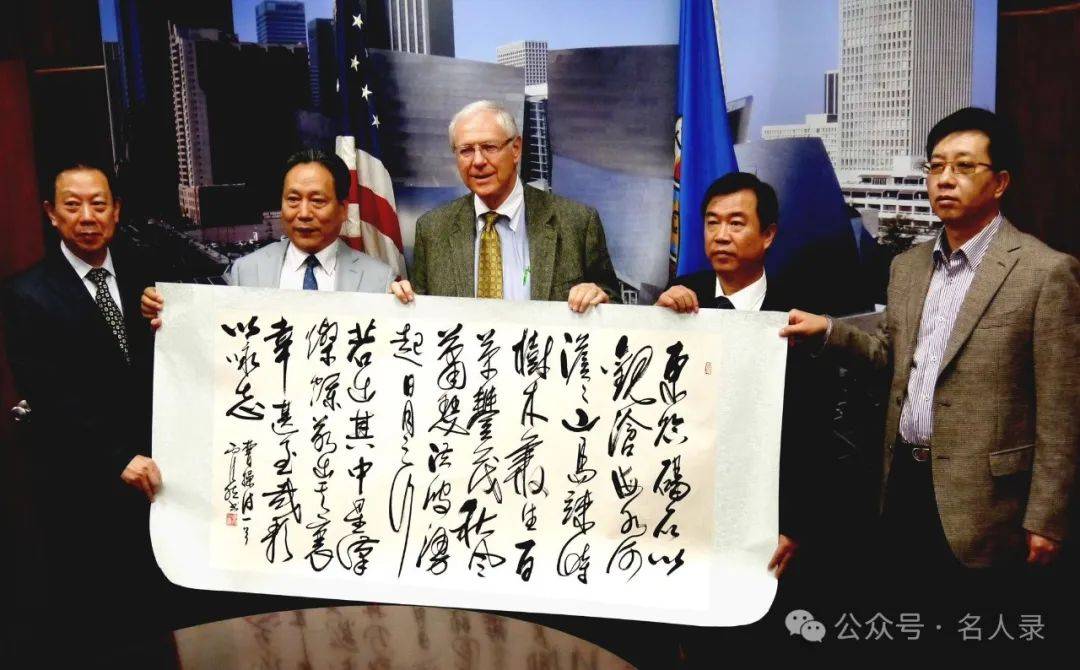 東臨碣石以
觀滄海水何
澹〻山島竦峙
樹木叢生百
草豐茂秋風
蕭瑟洪波湧
起日月之行
若出其中星漢
燦爛若出其裏
幸甚至哉歌
以咏志
曹操詩一首
公众号 · 名人录